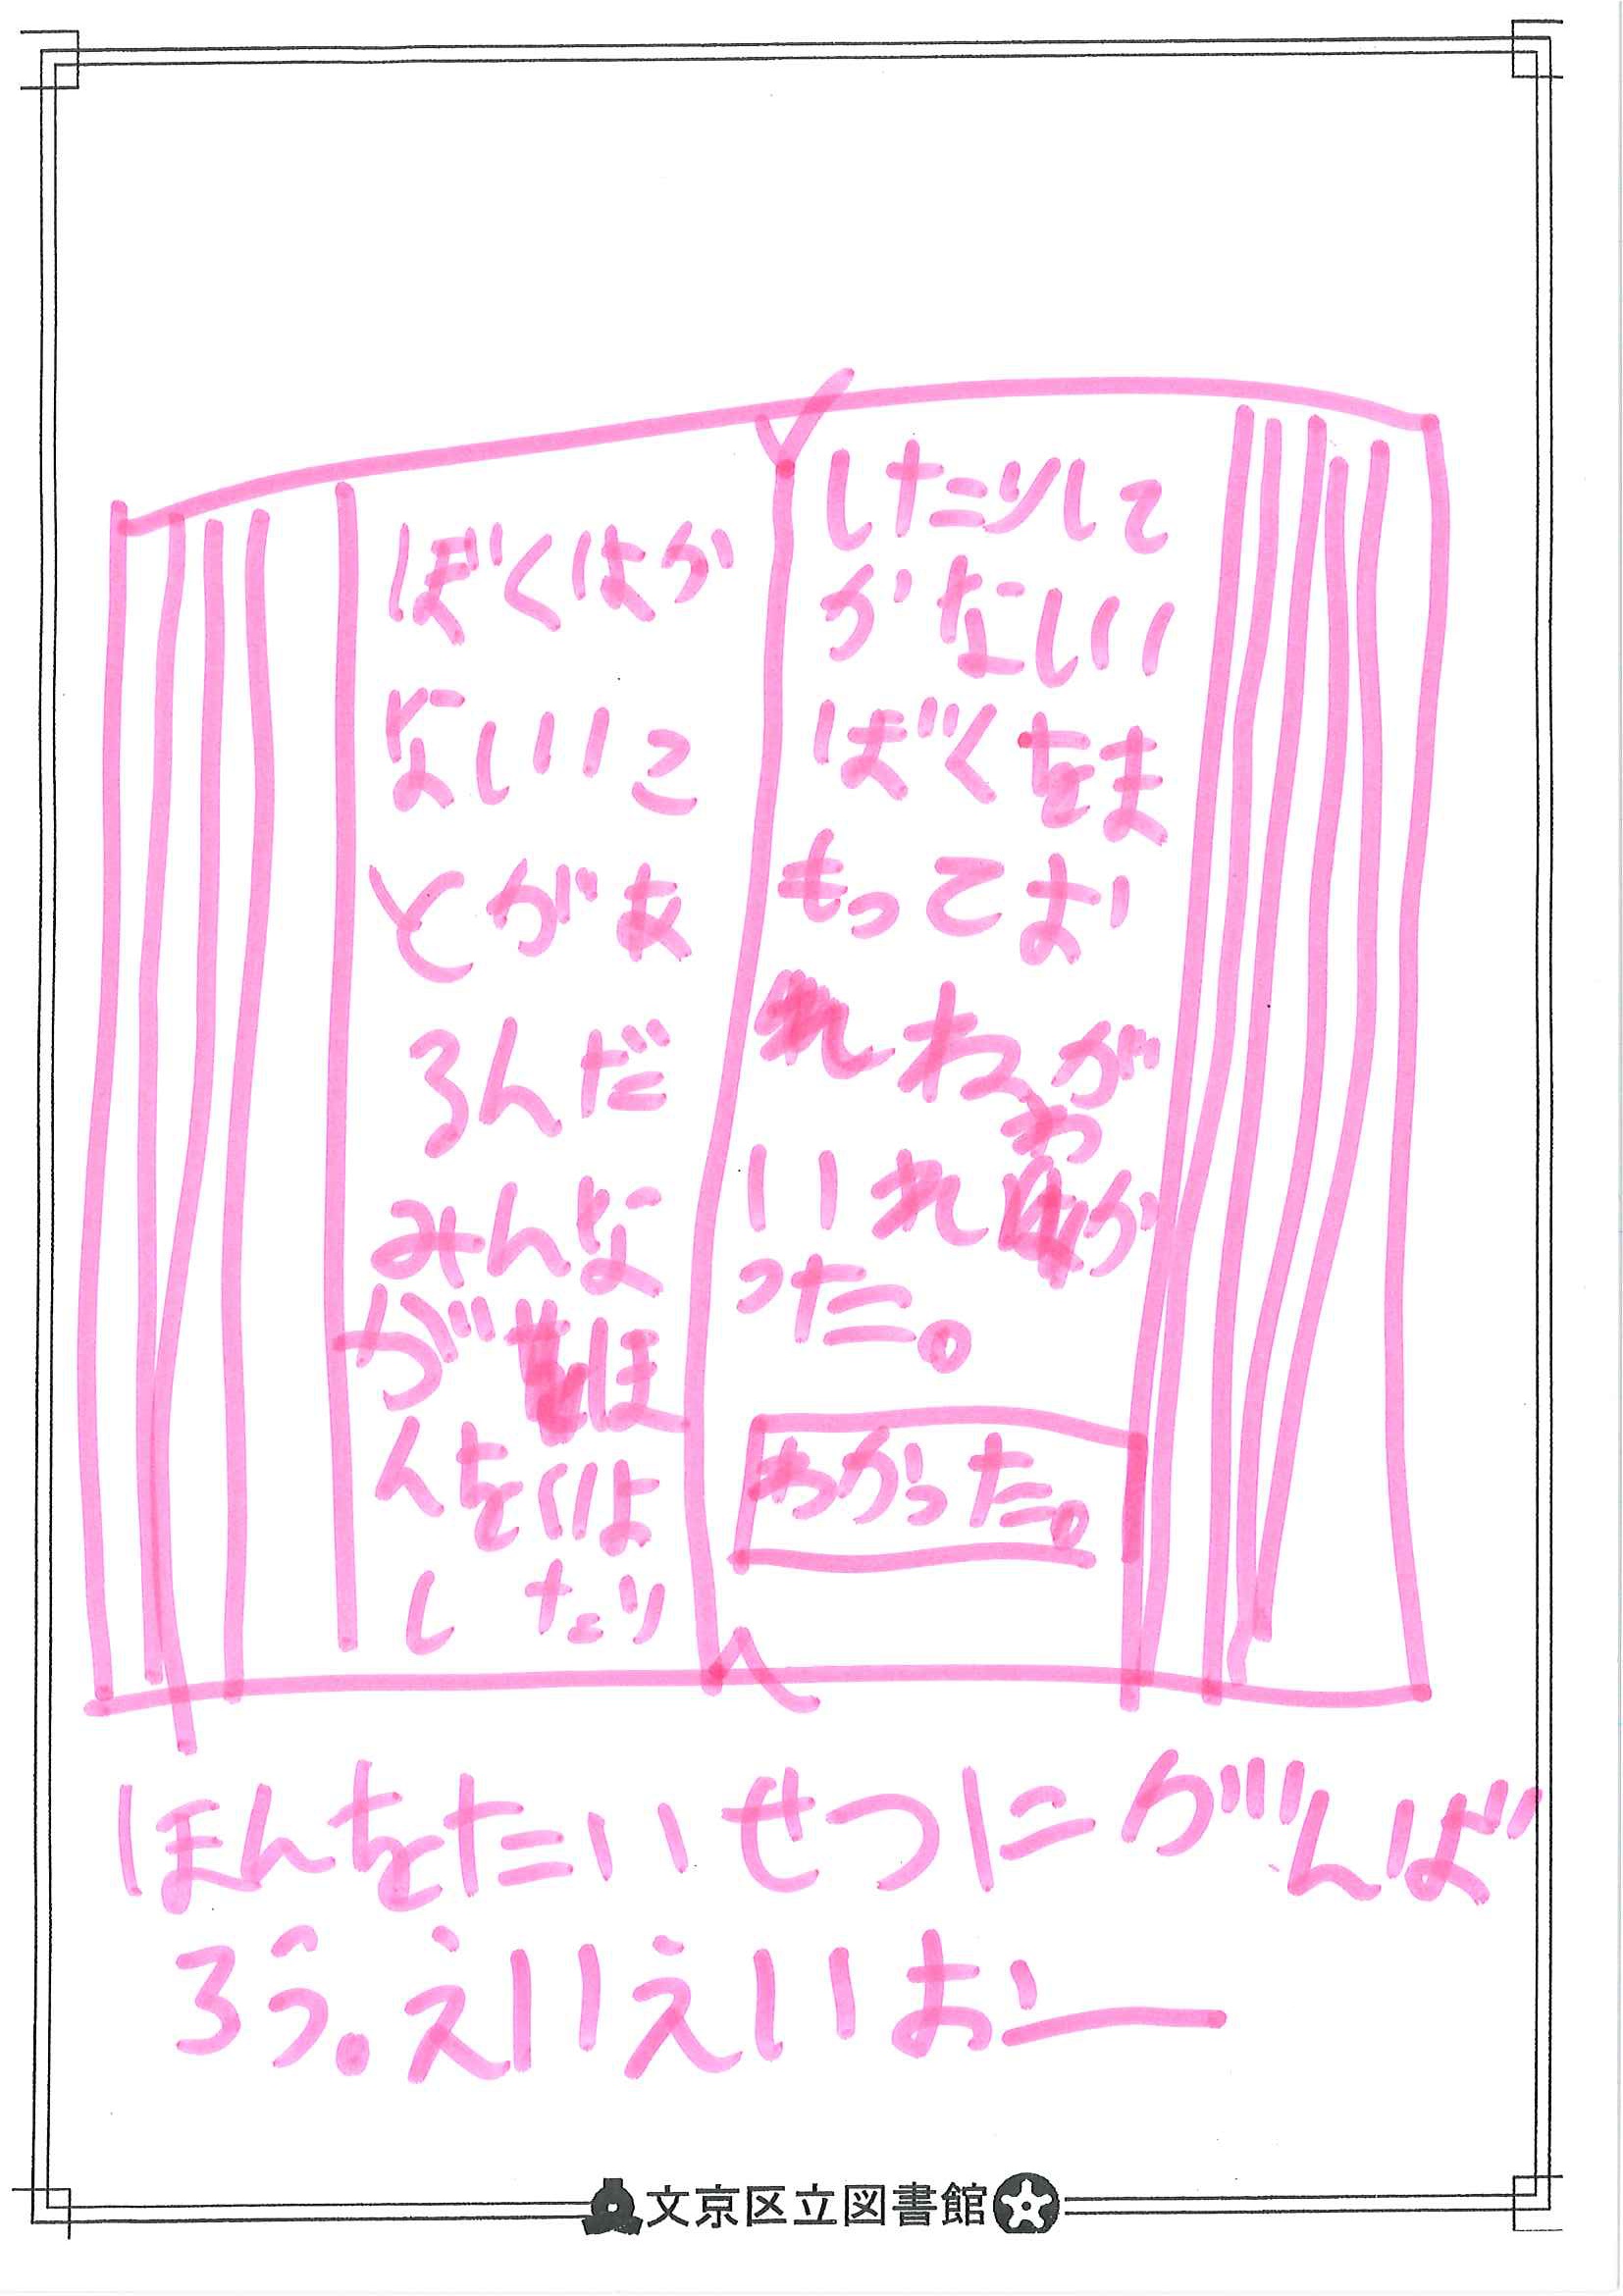 ぼくはか
ないいこ
とがあ
るんだ
みんな
がほ
んをくは
したり
したりして
かないい
ばくをま
もってお
れねが
いれわか
った。
わかった。
ほんをたいせつにがんば
ろう。えいえいおー
文京区立図書館